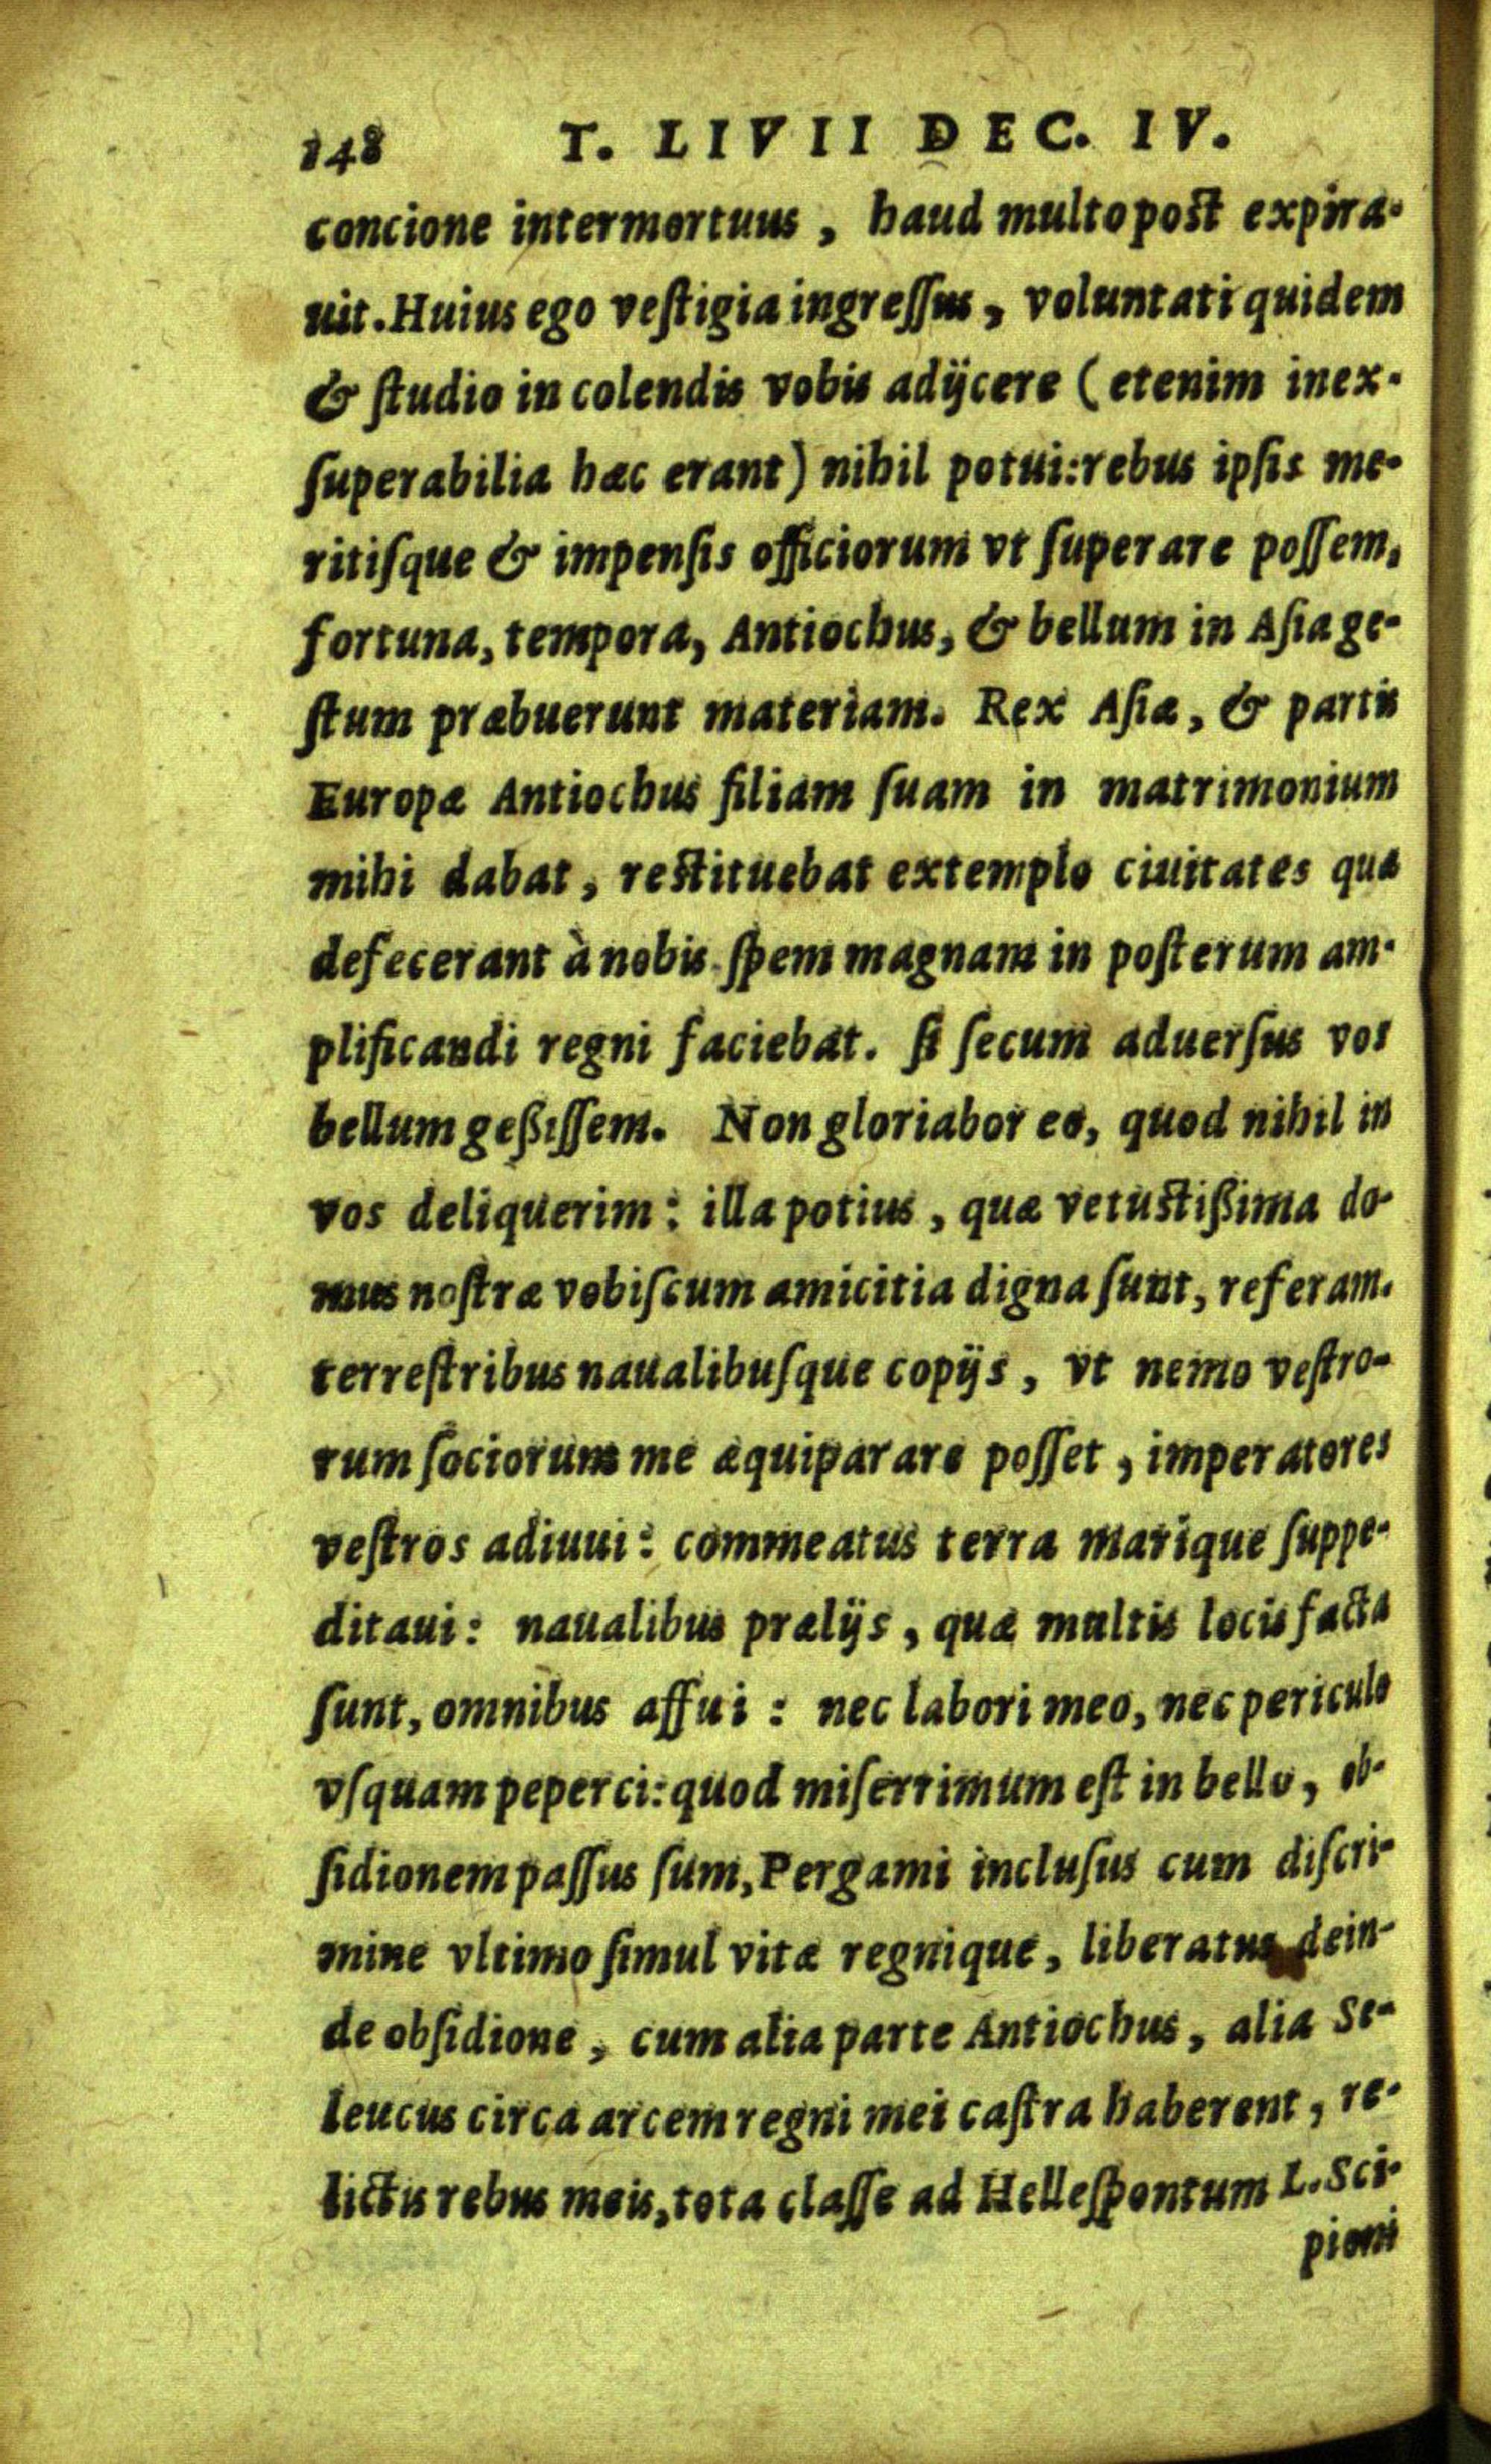 148 T. LIVII DEC. IV.
concione intermortuus, haud multo post expira-
uit. Huius ego veſtigia ingreſſus, voluntati quidem
& ſtudio in colendis vobis adijcere (etenim inex-
ſuperabilia hæc erant) nihil potui: rebus ipſis me-
ritiſque & impenſis officiorum vt ſuperare poſſem,
fortuna, tempora, Antiochus, & bellum in Aſia ge-
ſtum præbuerunt materiam. Rex Aſiæ, & partis
Europæ Antiochus filiam ſuam in matrimonium
mihi dabat, restituebat extemplo ciuitates quæ
defecerant à nobis. ſpem magnam in poſterum am-
plificandi regni faciebat. ſi ſecum aduerſus vos
bellum geßiſſem. Non gloriabor eo, quod nihil in
vos deliquerim: illa potius, quæ vetustißima do-
mus noſtræ vobiſcum amicitia digna ſunt, referam.
terreſtribus naualibuſque copijs, vt nemo veſtro-
rum ſociorum me æquiparare poſſet, imperatores
veſtros adiuui: commeatus terra marique ſuppe-
ditaui: naualibus prælijs, quæ multis locis facta
ſunt, omnibus affui: nec labori meo, nec periculo
vſquam peperci: quod miſerrimum eſt in bello, ob-
ſidionem paſſus ſum, Pergami incluſus cum diſcri-
mine vltimo ſimul vitæ regnique, liberatus dein-
de obſidione, cum alia parte Antiochus, alia Se-
leucus circa arcem regni mei caſtra haberent, re-
lictis rebus meis, tota claſſe ad Helleſpontum L. Sci-
pioni